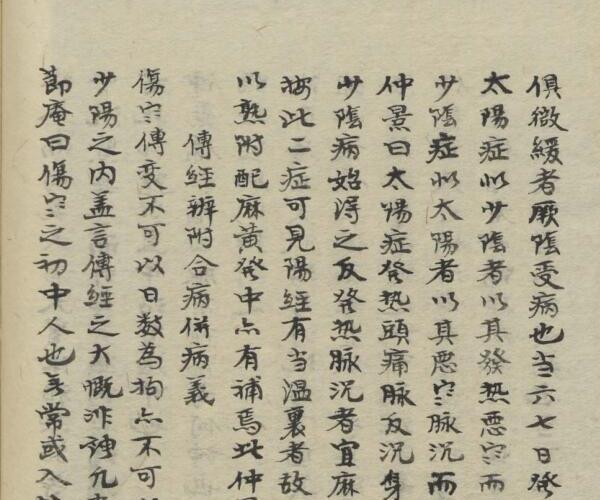 俱微緩者厥陰受病也当六七日發
太陽症似少陰者以其發热惡寒而
少陰症似太陽者以其恶寒脉沉而
仲景曰太陽症發热頭痛脉反沉身
少陰病始得之反發热脉沉者宜麻
按此二症可見陽經有当温裏者故
以熟附配麻黄發中亦有補焉此仲
傳經辨附合病併病義
傷寒傳变不可以日数為拘亦不可
少陽之内盖言傳經之大概非謂凢
節庵曰傷寒之初中人也无常或入